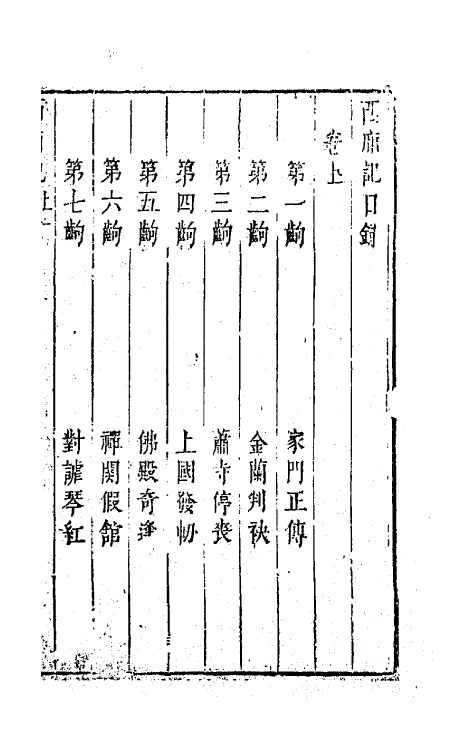 西廂記目錄
卷上
第一齣 家門正傳
第二齣 金蘭判袂
第三齣 蕭寺停喪
第四齣 上國發軔
第五齣 佛殿奇逢
第六齣 禪關假館
第七齣 對謔琴紅